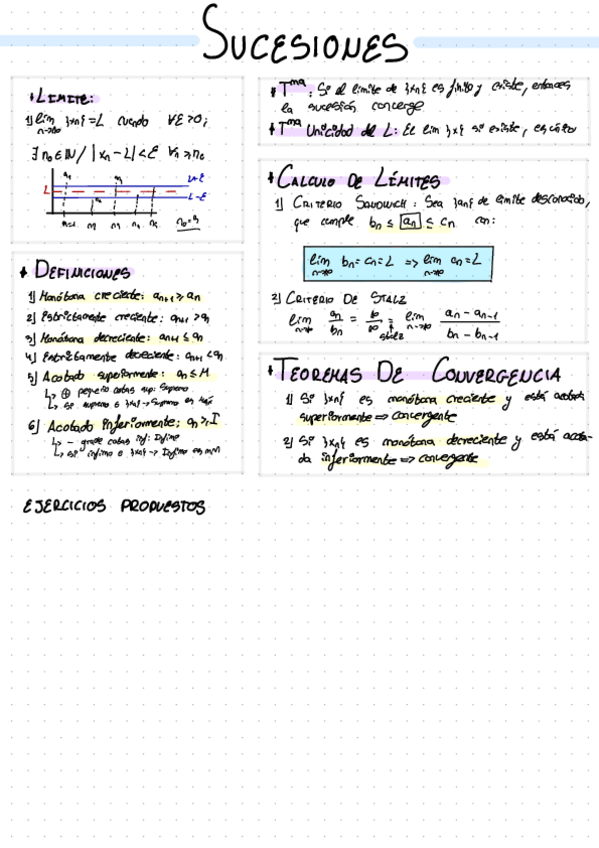 SUCESIONES
+ LIMITE:
1) lim {xn} = L cuando ∀ε>0;
n→∞
∃ n0 ∈ IN / |xn - L| < ε ∀n ≥ n0
L+ε
L
L-ε
+ DEFINICIONES
1) Monótona creciente: an+1 ≥ an
2) Estrictamente creciente: an+1 > an
3) Monótona decreciente: an+1 ≤ an
4) Estrictamente decreciente: an+1 < an
5) Acotado superiormente: an ≤ M
↳ ⊕ pequeña cotas sup: Supremo
↳ Si supremo ∈ {xn} → Supremo es máx
6) Acotado inferiormente: an ≥ I
↳ - grande cotas inf: Ínfimo
↳ si ínfimo ∈ {xn} → Ínfimo es mín
EJERCICIOS PROPUESTOS
+ Tma: Si el límite de {xn} es finito y existe, entonces
la sucesión converge
+ Tma Unicidad del L: El lim {x} si existe, es único
+ CALCULO DE LÍMITES
1) CRITERIO SANDWICH: Sea {an} de límite desconocido,
que cumple bn ≤ an ≤ cn con:
lim bn = cn = L => lim an = L
n→∞ n→∞
2) CRITERIO DE STOLZ
lim an/bn = ∞/∞ = lim (an - an-1)/(bn - bn-1)
n→∞ stolz n→∞
+ TEOREMAS DE CONVERGENCIA
1) Si {xn} es monótona creciente y está acotada
superiormente => convergente
2) Si {xn} es monótona decreciente y está acota-
da inferiormente => convergente